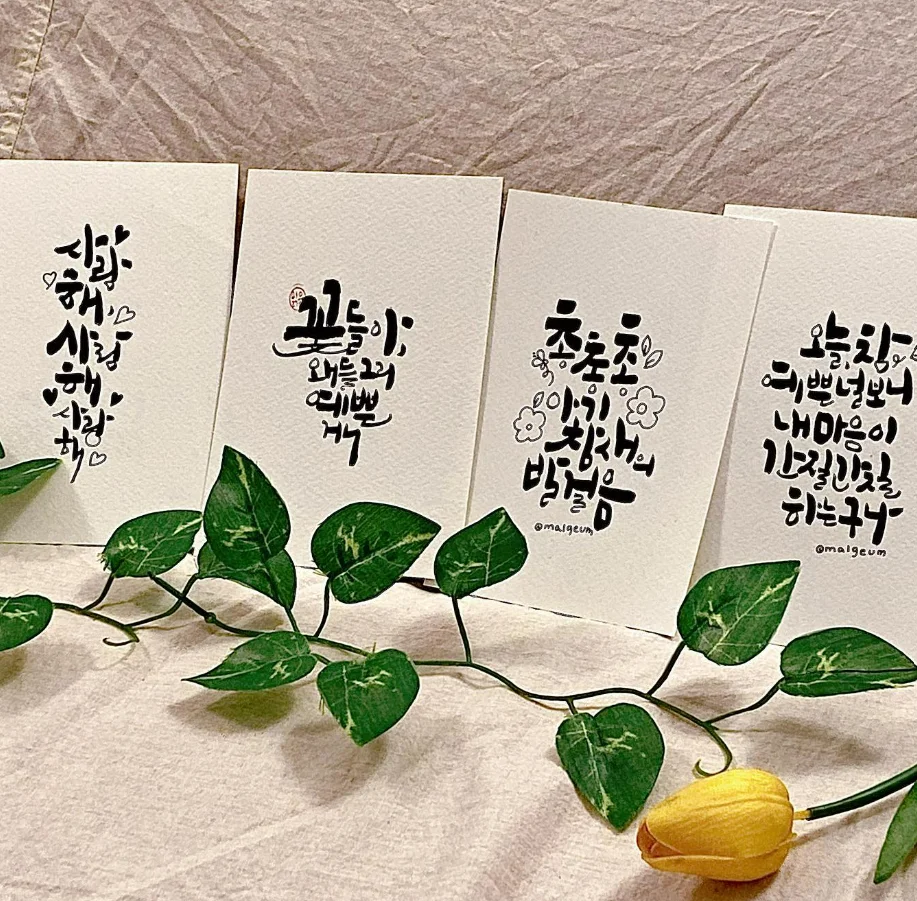 사랑
해,
사랑
해
사랑
해
꽃들아,
왜들 그리
예쁜
총총총
아기
참새의
발걸음
@malgeum
오늘, 참
예쁜 널 보니
내 마음이
간질간질
하는구나
@malgeum